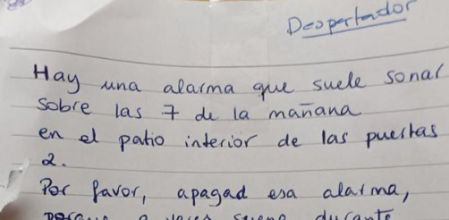 Despertador
Hay una alarma que suele sonar
sobre las 7 de la mañana
en el patio interior de las puertas
2.
Por favor, apagad esa alarma,
porque a veces suena durante